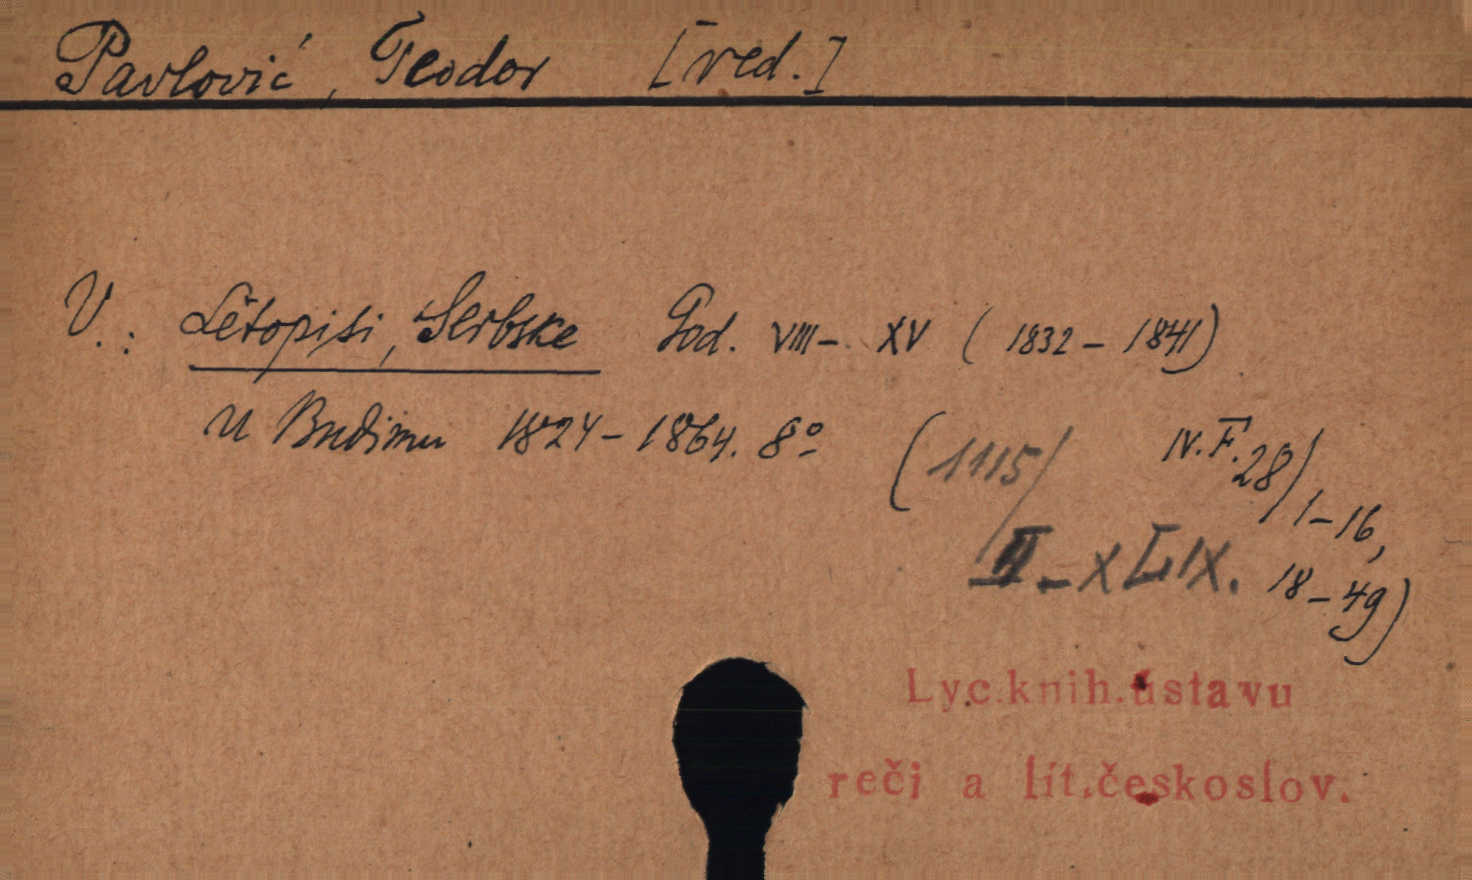 Pavlović, Teodor [red.]
V.: Lětopisi, Serbske God. VIII – XV (1832 – 1841)
u Budimu 1824 – 1864. 8º (1115/ IV. F. 28)/1–16,
II – XLIX. 18–49)
Lyc.knih.ústavu
reči a lit.českoslov.